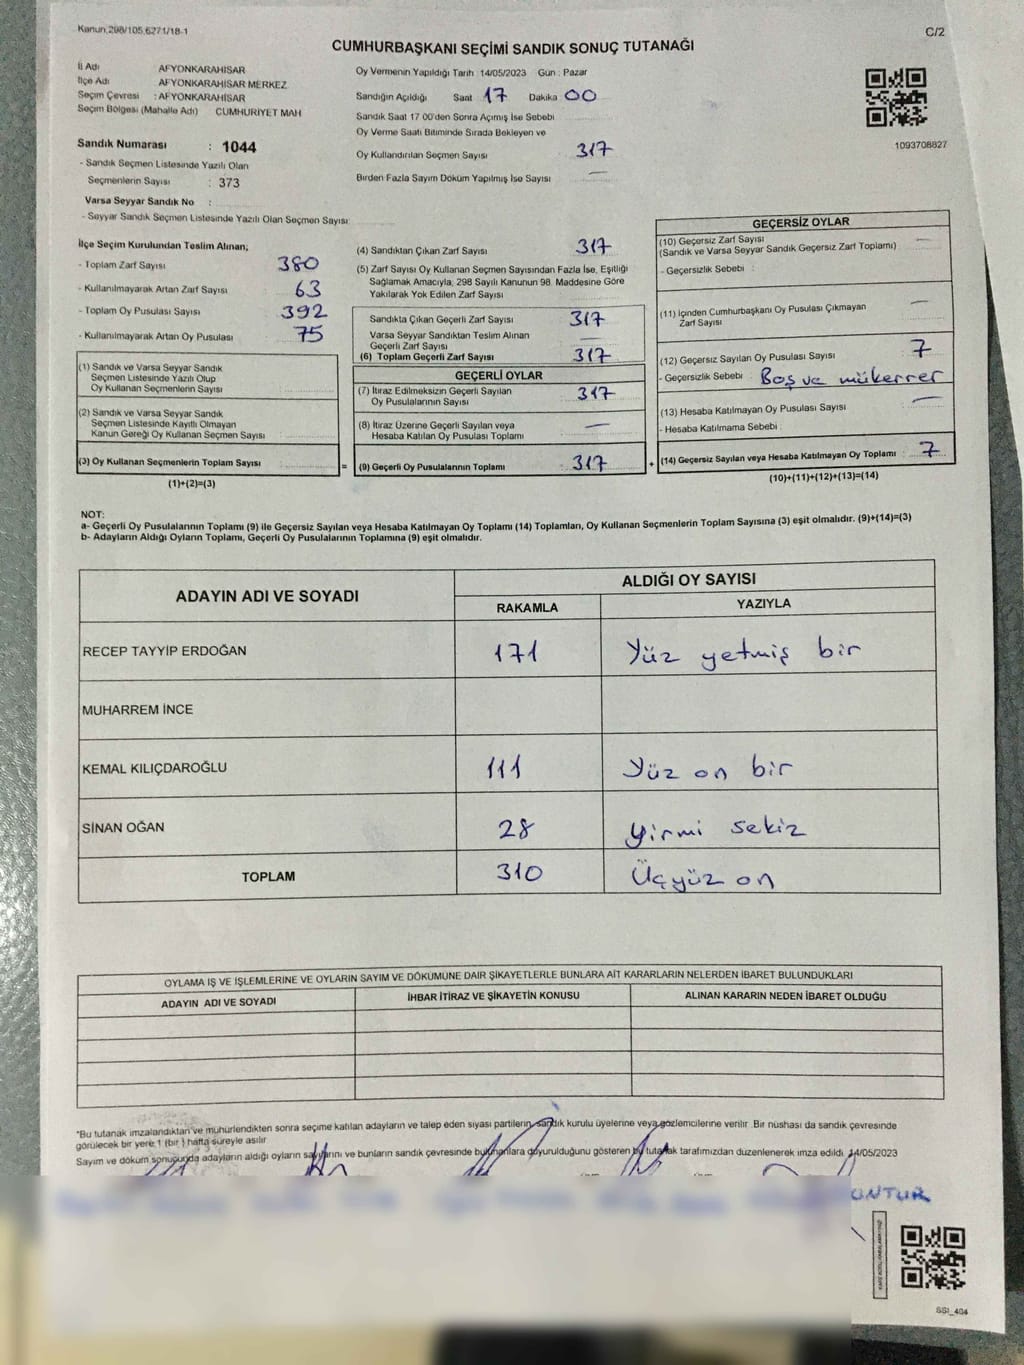 Kanun,298/105,6271/18-1
C/2
CUMHURBAŞKANI SEÇİMİ SANDIK SONUÇ TUTANAĞI
İl Adı AFYONKARAHİSAR
İlçe Adı AFYONKARAHİSAR MERKEZ
Seçim Çevresi : AFYONKARAHİSAR
Seçim Bölgesi (Mahalle Adı) CUMHURİYET MAH
Sandık Numarası : 1044
- Sandık Seçmen Listesinde Yazılı Olan
Seçmenlerin Sayısı : 373
Varsa Seyyar Sandık No :
- Seyyar Sandık Seçmen Listesinde Yazılı Olan Seçmen Sayısı:
Oy Vermenin Yapıldığı Tarih :14/05/2023 Gün : Pazar
Sandığın Açıldığı Saat 17 Dakika 00
Sandık Saat 17 00'den Sonra Açımış İse Sebebi
Oy Verme Saati Bitiminde Sırada Bekleyen ve
Oy Kullandırılan Seçmen Sayısı 317
Birden Fazla Sayım Döküm Yapılmış İse Sayısı —
1093708827
İlçe Seçim Kurulundan Teslim Alınan;
- Toplam Zarf Sayısı 380
- Kullanılmayarak Artan Zarf Sayısı 63
- Toplam Oy Pusulası Sayısı 392
- Kullanılmayarak Artan Oy Pusulası 75
(1) Sandık ve Varsa Seyyar Sandık
Seçmen Listesinde Yazılı Olup
Oy Kullanan Seçmenlerin Sayısı :
(2) Sandık ve Varsa Seyyar Sandık
Seçmen Listesinde Kayıtlı Olmayan
Kanun Gereği Oy Kullanan Seçmen Sayısı :
(3) Oy Kullanan Seçmenlerin Toplam Sayısı :
(1)+(2)=(3)
=
(4) Sandıktan Çıkan Zarf Sayısı 317
(5) Zarf Sayısı Oy Kullanan Seçmen Sayısından Fazla İse, Eşitliği
Sağlamak Amacıyla, 298 Sayılı Kanunun 98. Maddesine Göre
Yakılarak Yok Edilen Zarf Sayısı
Sandıkta Çıkan Geçerli Zarf Sayısı 317
Varsa Seyyar Sandıktan Teslim Alınan
Geçerli Zarf Sayısı —
(6) Toplam Geçerli Zarf Sayısı 317
GEÇERLİ OYLAR
(7) İtiraz Edilmeksizin Geçerli Sayılan
Oy Pusulalarının Sayısı : 317
(8) İtiraz Üzerine Geçerli Sayılan veya
Hesaba Katılan Oy Pusulası Toplamı —
(9) Geçerli Oy Pusulalarının Toplamı : 317
+
GEÇERSİZ OYLAR
(10) Geçersiz Zarf Sayısı —
(Sandık ve Varsa Seyyar Sandık Geçersiz Zarf Toplamı)
- Geçersizlik Sebebi :
(11) İçinden Cumhurbaşkanı Oy Pusulası Çıkmayan
Zarf Sayısı —
(12) Geçersiz Sayılan Oy Pusulası Sayısı 7
- Geçersizlik Sebebi : Boş ve mükerrer
(13) Hesaba Katılmayan Oy Pusulası Sayısı —
- Hesaba Katılmama Sebebi :
(14) Geçersiz Sayılan veya Hesaba Katılmayan Oy Toplamı : 7
(10)+(11)+(12)+(13)=(14)
NOT:
a- Geçerli Oy Pusulalarının Toplamı (9) ile Geçersiz Sayılan veya Hesaba Katılmayan Oy Toplamı (14) Toplamları, Oy Kullanan Seçmenlerin Toplam Sayısına (3) eşit olmalıdır. (9)+(14)=(3)
b- Adayların Aldığı Oyların Toplamı, Geçerli Oy Pusulalarının Toplamına (9) eşit olmalıdır.
ADAYIN ADI VE SOYADI
ALDIĞI OY SAYISI
RAKAMLA YAZIYLA
RECEP TAYYİP ERDOĞAN 171 Yüz yetmiş bir
MUHARREM İNCE
KEMAL KILIÇDAROĞLU 111 Yüz on bir
SİNAN OĞAN 28 yirmi sekiz
TOPLAM 310 Üçyüz on
OYLAMA İŞ VE İŞLEMLERİNE VE OYLARIN SAYIM VE DÖKÜMÜNE DAİR ŞİKAYETLERLE BUNLARA AİT KARARLARIN NELERDEN İBARET BULUNDUKLARI
ADAYIN ADI VE SOYADI İHBAR İTİRAZ VE ŞİKAYETİN KONUSU ALINAN KARARIN NEDEN İBARET OLDUĞU
*Bu tutanak imzalandıktan ve mühürlendikten sonra seçime katılan adayların ve talep eden siyasi partilerin, sandık kurulu üyelerine veya gözlemcilerine verilir. Bir nüshası da sandık çevresinde
görülecek bir yere 1 (bir ) hafta süreyle asılır
Sayım ve döküm sonucunda adayların aldığı oyların sayılarını ve bunların sandık çevresinde bulunanlara duyurulduğunu gösteren bu tutanak tarafımızdan düzenlenerek imza edildi. 14/05/2023
SSI_404